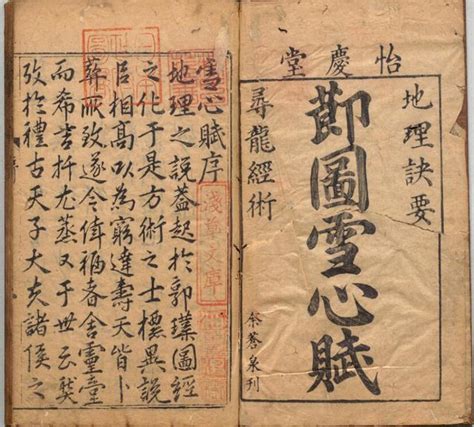 怡慶堂
地理訣要
莭圖雪心賦
尋龍經術
蒼泉刊
雪心賦序
地理之說蓋起於郭璞圖經
之化于是方術之士標異說
相高以為窮達壽夭皆卜
葬所致遂令倖福者舍靈臺
而希吉扦尤蒸又于世云
攷於禮古天子大夫諸侯之
淺草文庫